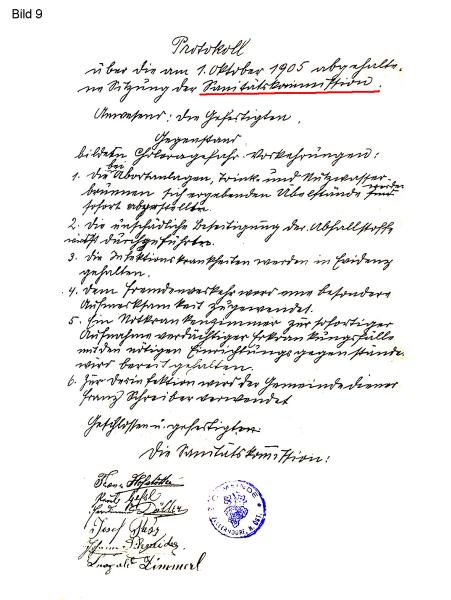 Bild 9
Protokoll
über die am 1. Oktober 1905 abgehalte-
ne Sitzung der Sanitätskommission.
Anwesend: die Gefertigten.
Gegenstand
bilden Choleragefahr Vorkehrungen:
1. Die bei Abortanlagen, Trink- und Nutzwasser-
brunnen sich ergebenden Übelstände werden
sofort abgestellt.
2. Die unschädliche Beseitigung der Abfallstoffe
wird durchgeführt.
3. Die Infektionskrankheiten werden in Evidenz
gehalten.
4. Dem Fremdenverkehr wird eine besondere
Aufmerksamkeit zugewendet.
5. Ein Notkrankenzimmer zur sofortigen
Aufnahme verdächtiger Erkrankungsfälle
mit den nötigen Einrichtungsgegenständen
wird bereit gehalten.
6. Zur Desinfektion wird der Gemeindediener
Franz Schreiber verwendet
Geschlossen u. gefertigt.
Die Sanitätskommission:
Franz
Josef
Leopold Zimmerl
GEMEINDE